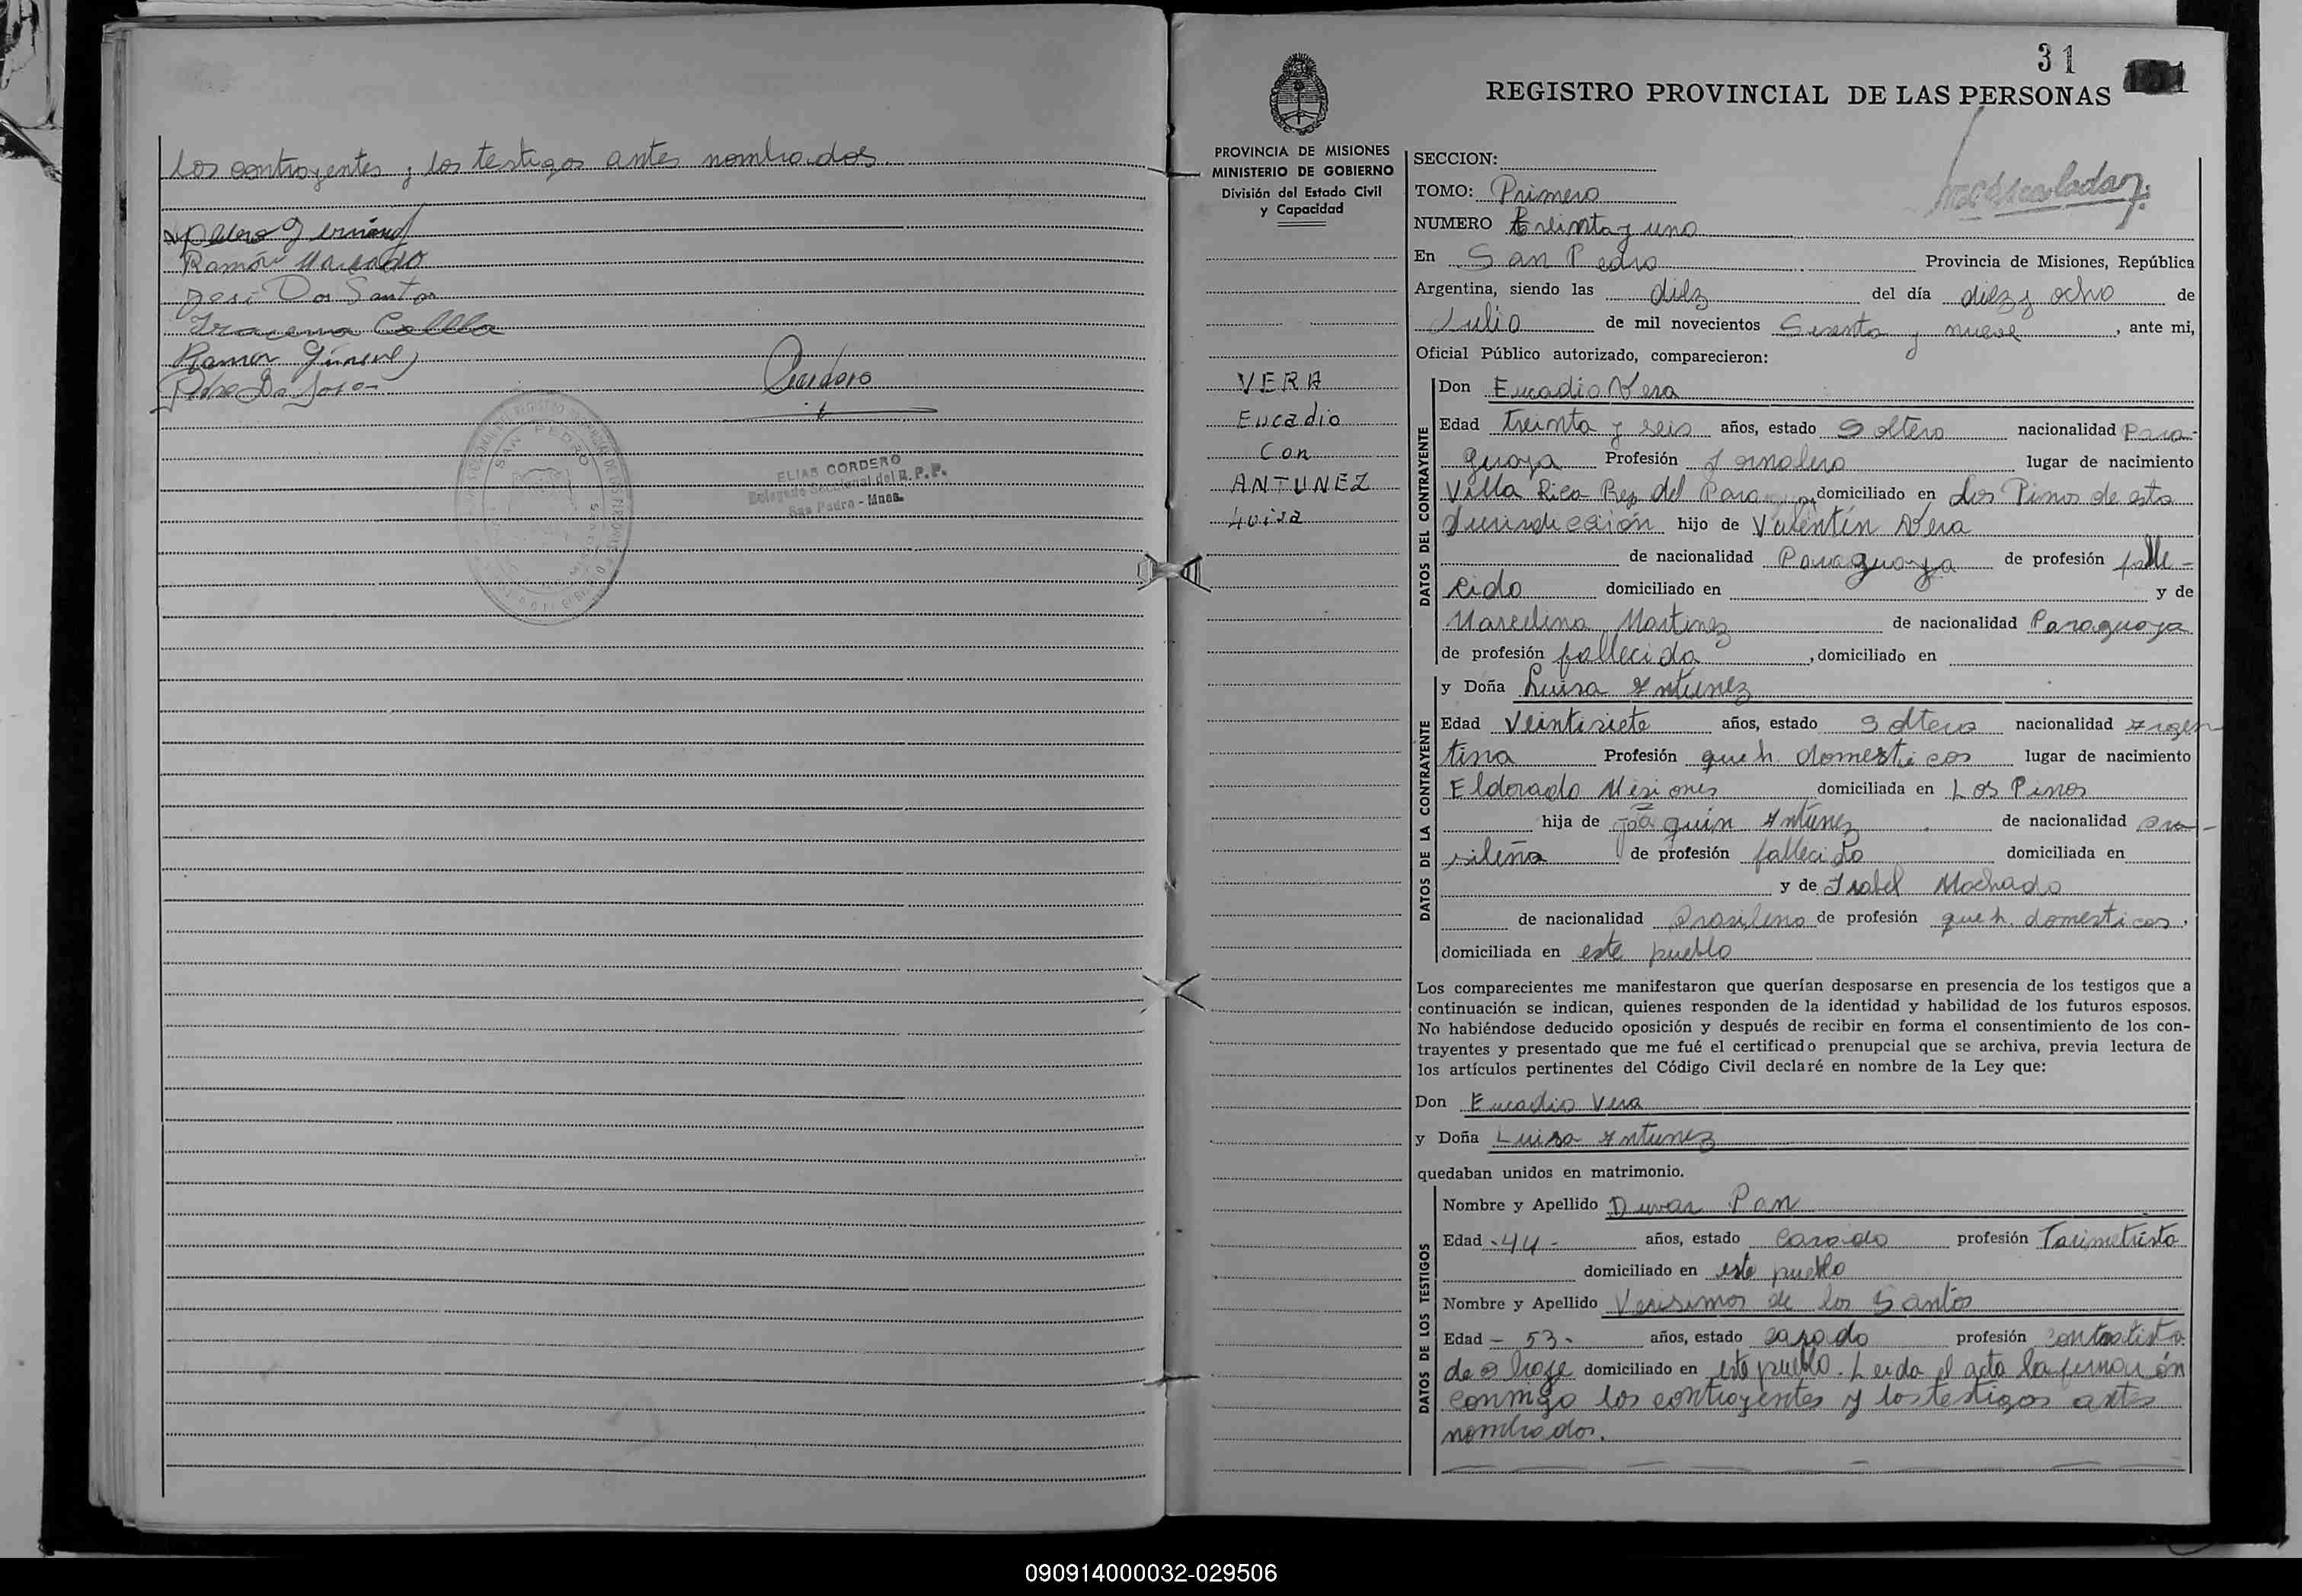 los contrayentes y los testigos antes nombrados.
Ramón
José Dos Santos
Ramon Gimenez
Cordero
SAN PEDRO
ELIAS CORDERO
Delegado Seccional del R. P. P.
San Pedro - Mnes.
31
REGISTRO PROVINCIAL DE LAS PERSONAS
PROVINCIA DE MISIONES
MINISTERIO DE GOBIERNO
División del Estado Civil
y Capacidad
VERA
Eucadio
Con
ANTUNEZ
Luisa
SECCION:
TOMO: Primero
NUMERO treinta y uno
En San Pedro Provincia de Misiones, República
Argentina, siendo las diez del día diez y ocho de
Julio de mil novecientos Sesenta y nueve, ante mi,
Oficial Público autorizado, comparecieron:
DATOS DEL CONTRAYENTE
Don Eucadio Vera
Edad treinta y seis años, estado Soltero nacionalidad Para-
guaya Profesión Jornalero lugar de nacimiento
Villa Rica Rep del Paraguay domiciliado en Los Pinos de esta
Jurisdicción hijo de Valentín Vera
de nacionalidad Paraguaya de profesión falle-
cido domiciliado en y de
Marcelina Martinez de nacionalidad Paraguaya
de profesión fallecida, domiciliado en
DATOS DE LA CONTRAYENTE
y Doña Luisa Antunez
Edad Veintisiete años, estado Soltera nacionalidad Argen
tina Profesión queh. domesticos lugar de nacimiento
Eldorado Misiones domiciliada en Los Pinos
hija de Joaquin Antunez de nacionalidad Bra-
sileña de profesión fallecido domiciliada en
y de Isabel Machado
de nacionalidad Brasilena de profesión queh. domesticos,
domiciliada en este pueblo
Los comparecientes me manifestaron que querían desposarse en presencia de los testigos que a
continuación se indican, quienes responden de la identidad y habilidad de los futuros esposos.
No habiéndose deducido oposición y después de recibir en forma el consentimiento de los con-
trayentes y presentado que me fué el certificado prenupcial que se archiva, previa lectura de
los artículos pertinentes del Código Civil declaré en nombre de la Ley que:
Don Eucadio Vera
y Doña Luisa Antunez
quedaban unidos en matrimonio.
DATOS DE LOS TESTIGOS
Nombre y Apellido Duvar Pan
Edad -44- años, estado Casado profesión
domiciliado en este pueblo
Nombre y Apellido Verisimos de los Santos
Edad - 53 - años, estado casado profesión contratista
de obraje domiciliado en este pueblo. Leida el acta la firmaron
conmigo los contrayentes y los testigos antes
nombrados.
090914000032-029506